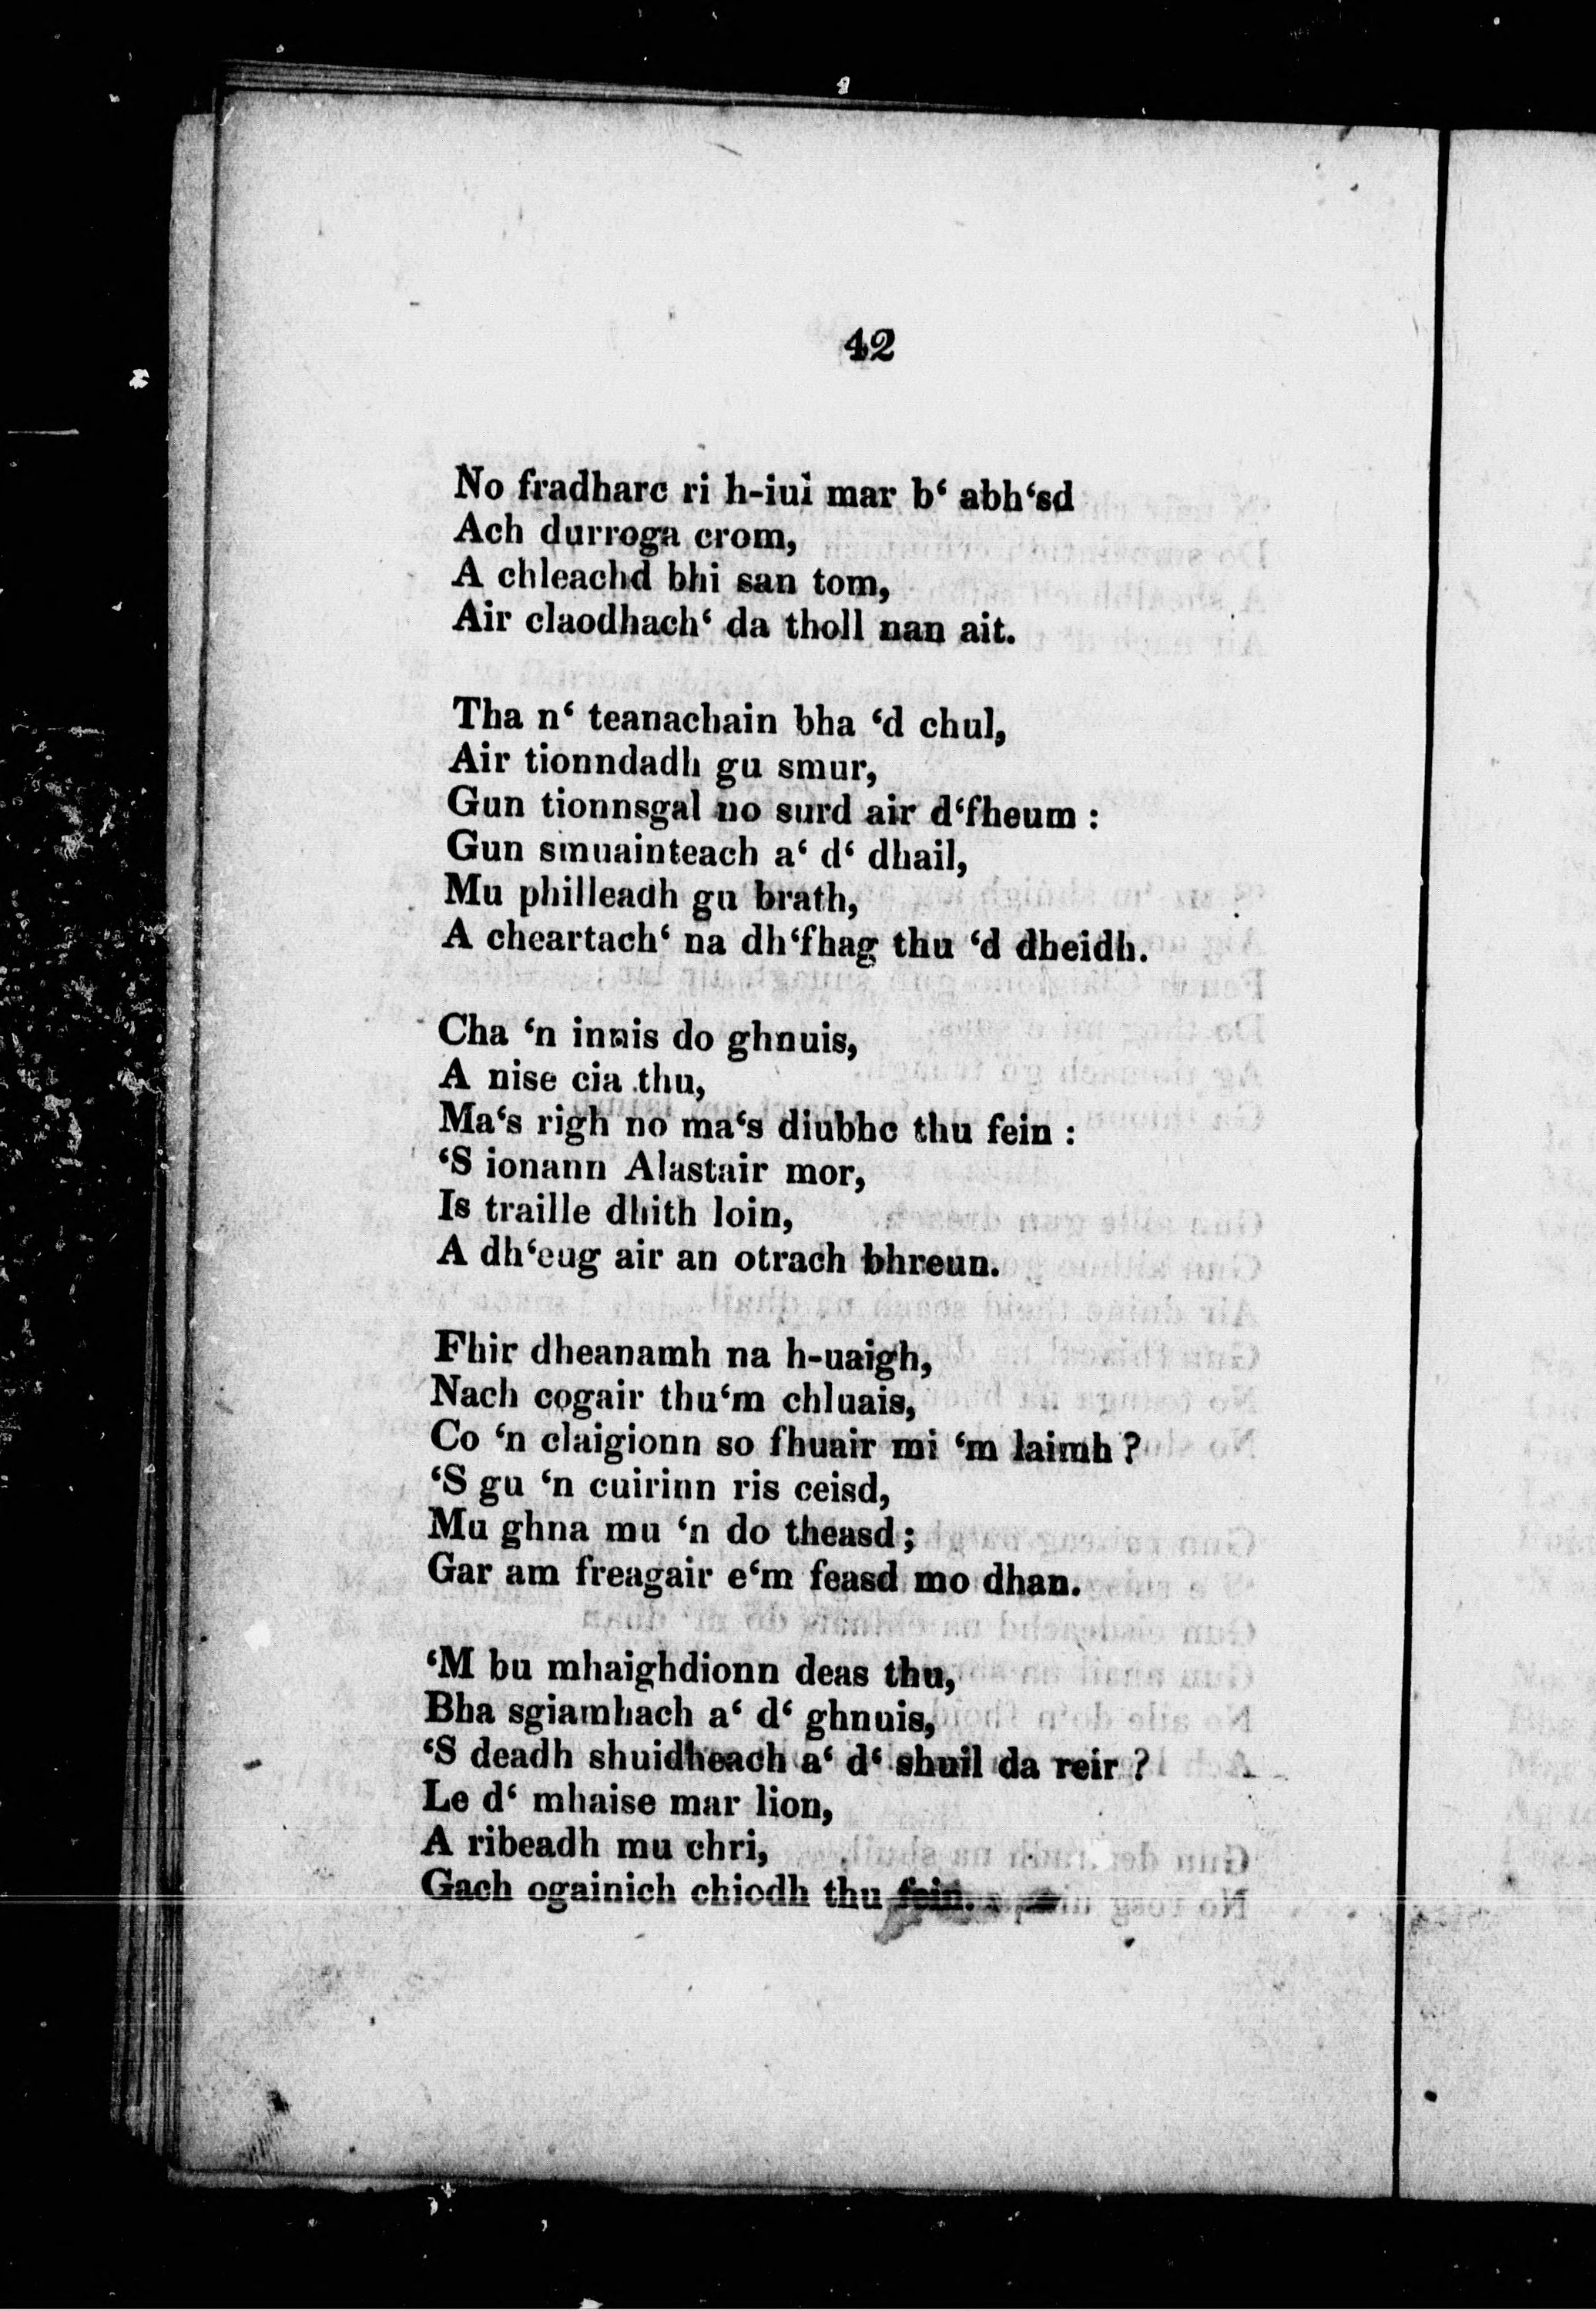 42
No fradharc ri h-iui mar b‘ abh‘sd
Ach durroga crom,
A chleachd bhi san tom,
Air claodhach‘ da tholl nan ait.
Tha n‘ teanachain bha ‘d chul,
Air tionndadh gu smur,
Gun tionnsgal no surd air d‘fheum :
Gun smuainteach a‘ d‘ dhail,
Mu philleadh gu brath,
A cheartach‘ na dh‘fhag thu ‘d dheidh.
Cha ‘n innis do ghnuis,
A nise cia thu,
Ma‘s righ no ma‘s diubhc thu fein :
‘S ionann Alastair mor,
Is traille dhith loin,
A dh‘eug air an otrach bhreun.
Fhir dheanamh na h-uaigh,
Nach cogair thu‘m chluais,
Co ‘n claigionn so fhuair mi ‘m laimh ?
‘S gu ‘n cuirinn ris ceisd,
Mu ghna mu ‘n do theasd ;
Gar am freagair e‘m feasd mo dhan.
‘M bu mhaighdionn deas thu,
Bha sgiamhach a‘ d‘ ghnuis,
‘S deadh shuidheach a‘ d‘ shuil da reir ?
Le d‘ mhaise mar lion,
A ribeadh mu chri,
Gach ogainich chiodh thu fein.